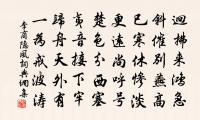 迴拂來鴻急
斜催別燕高
已寒休慘淡
更遠尚呼号
楚色分西塞
夷音接下牢
歸舟天外有
一為戒波濤
李商隐風詞典網集